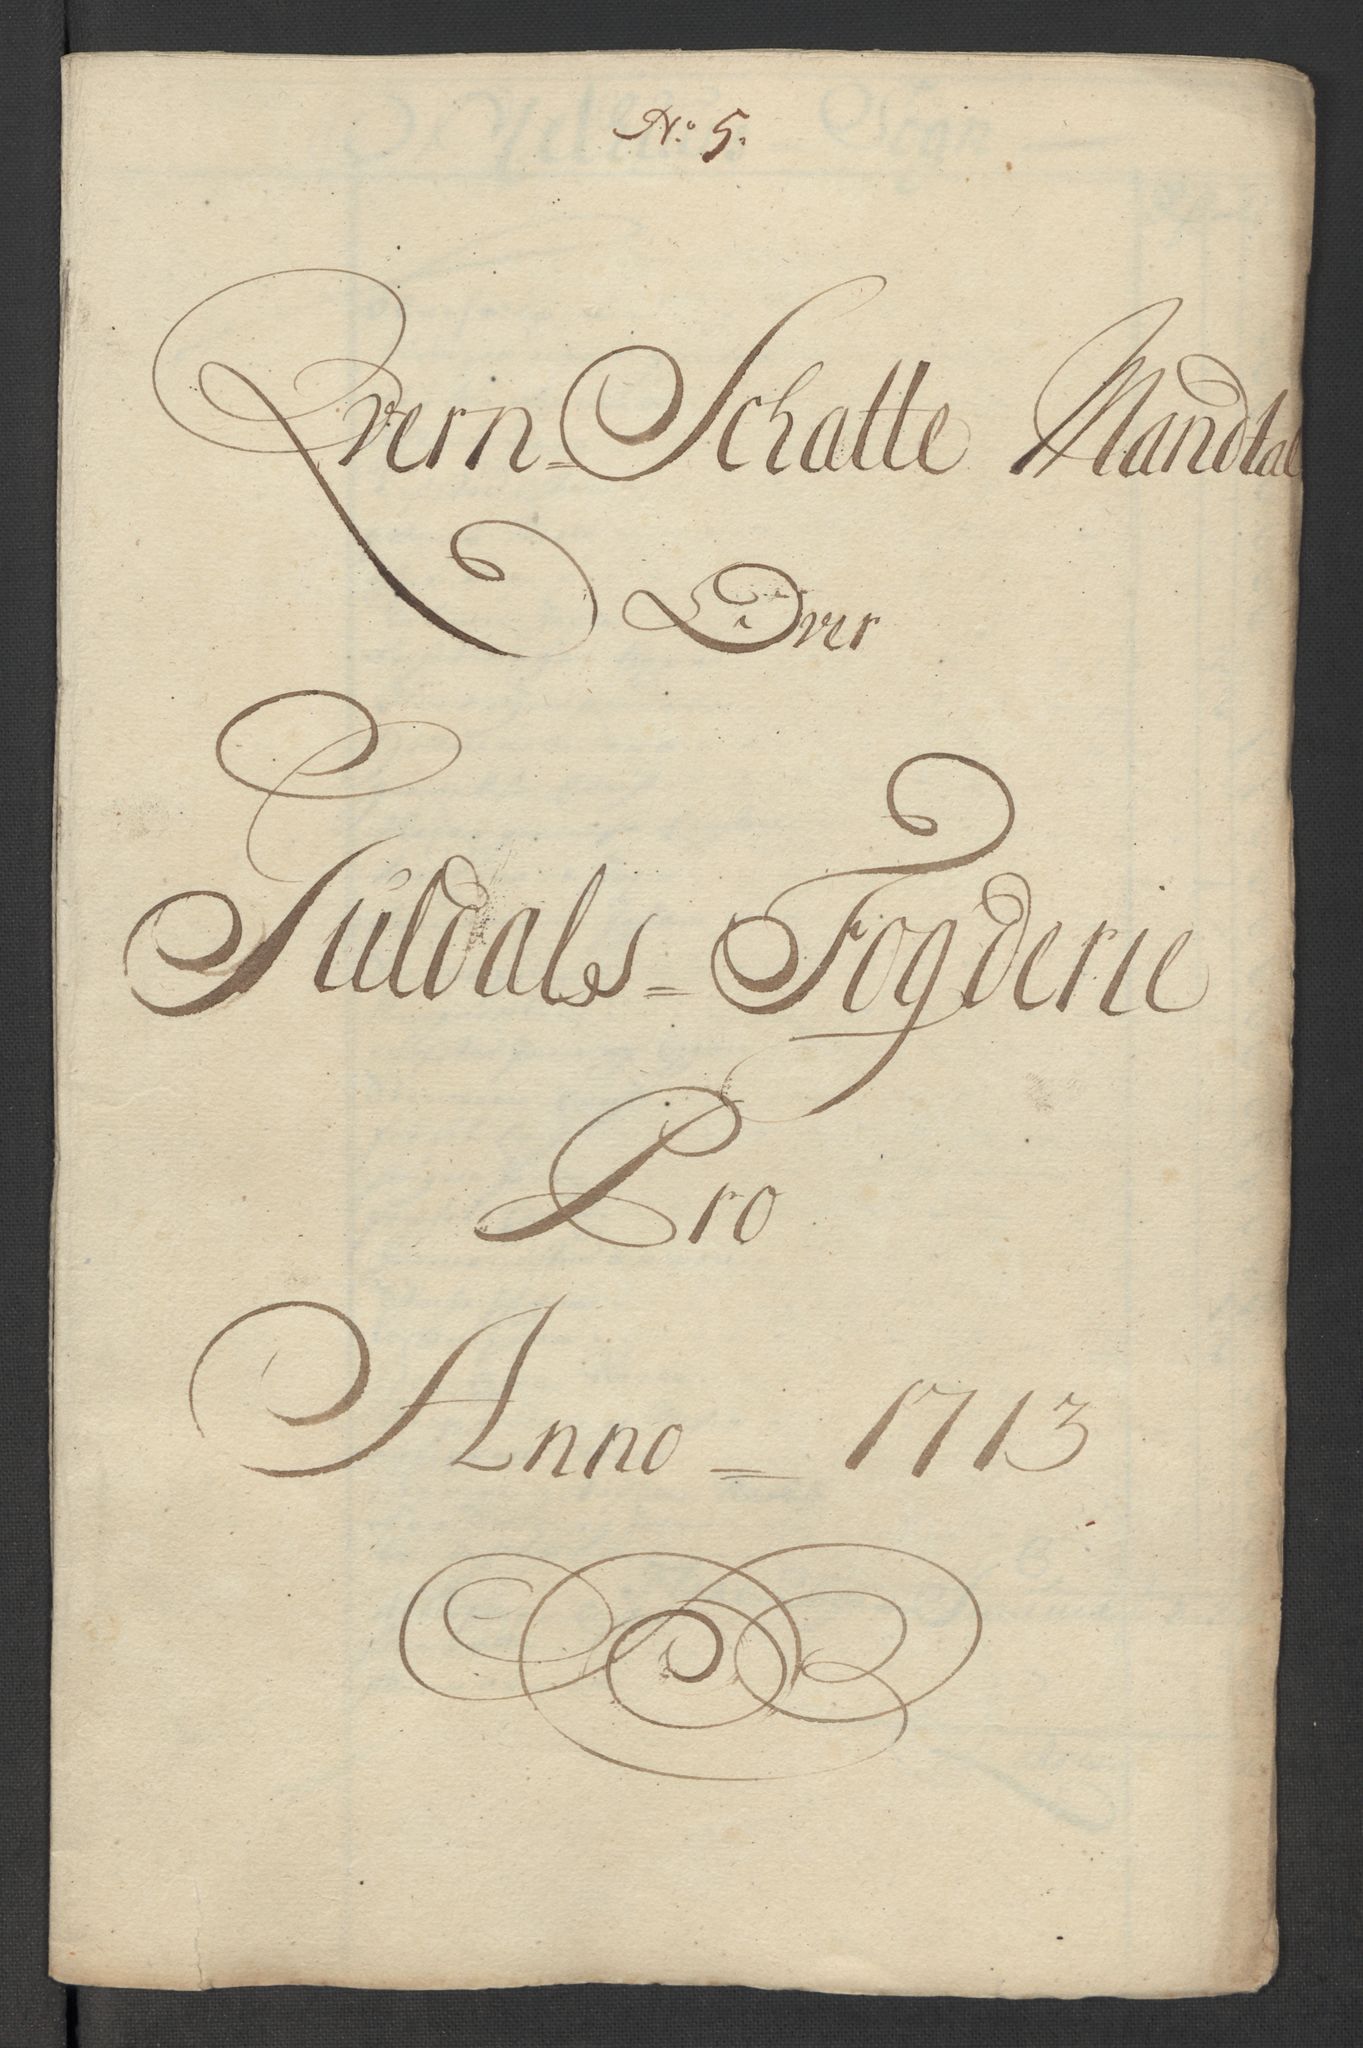 No. 5.
Qvern-Schatte Mandtal
Over
Guldals-Fogderie
Pro
Anno - 1713